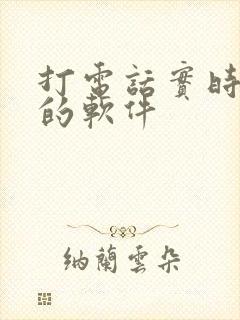 打電話實時
的軟件
納蘭雲朵